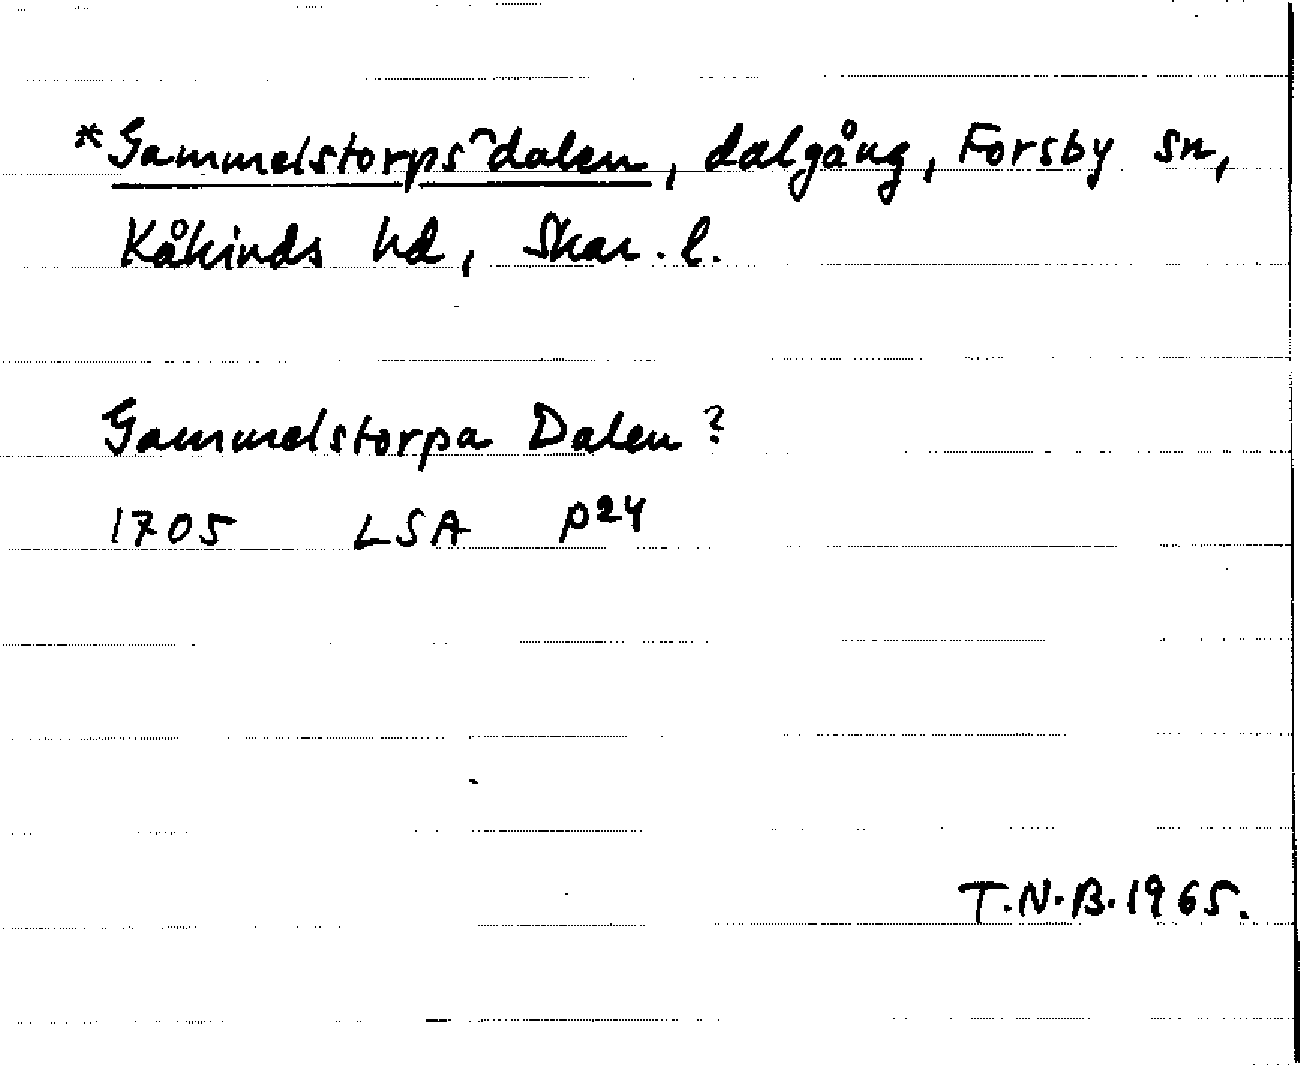 *Gammelstorps⁀dalen, dalgång, Forsby sn,
Kåkinds hd, Skar. l.
Gammelstorpa Dalen?
1705 LSA P24
T.N.B. 1965.